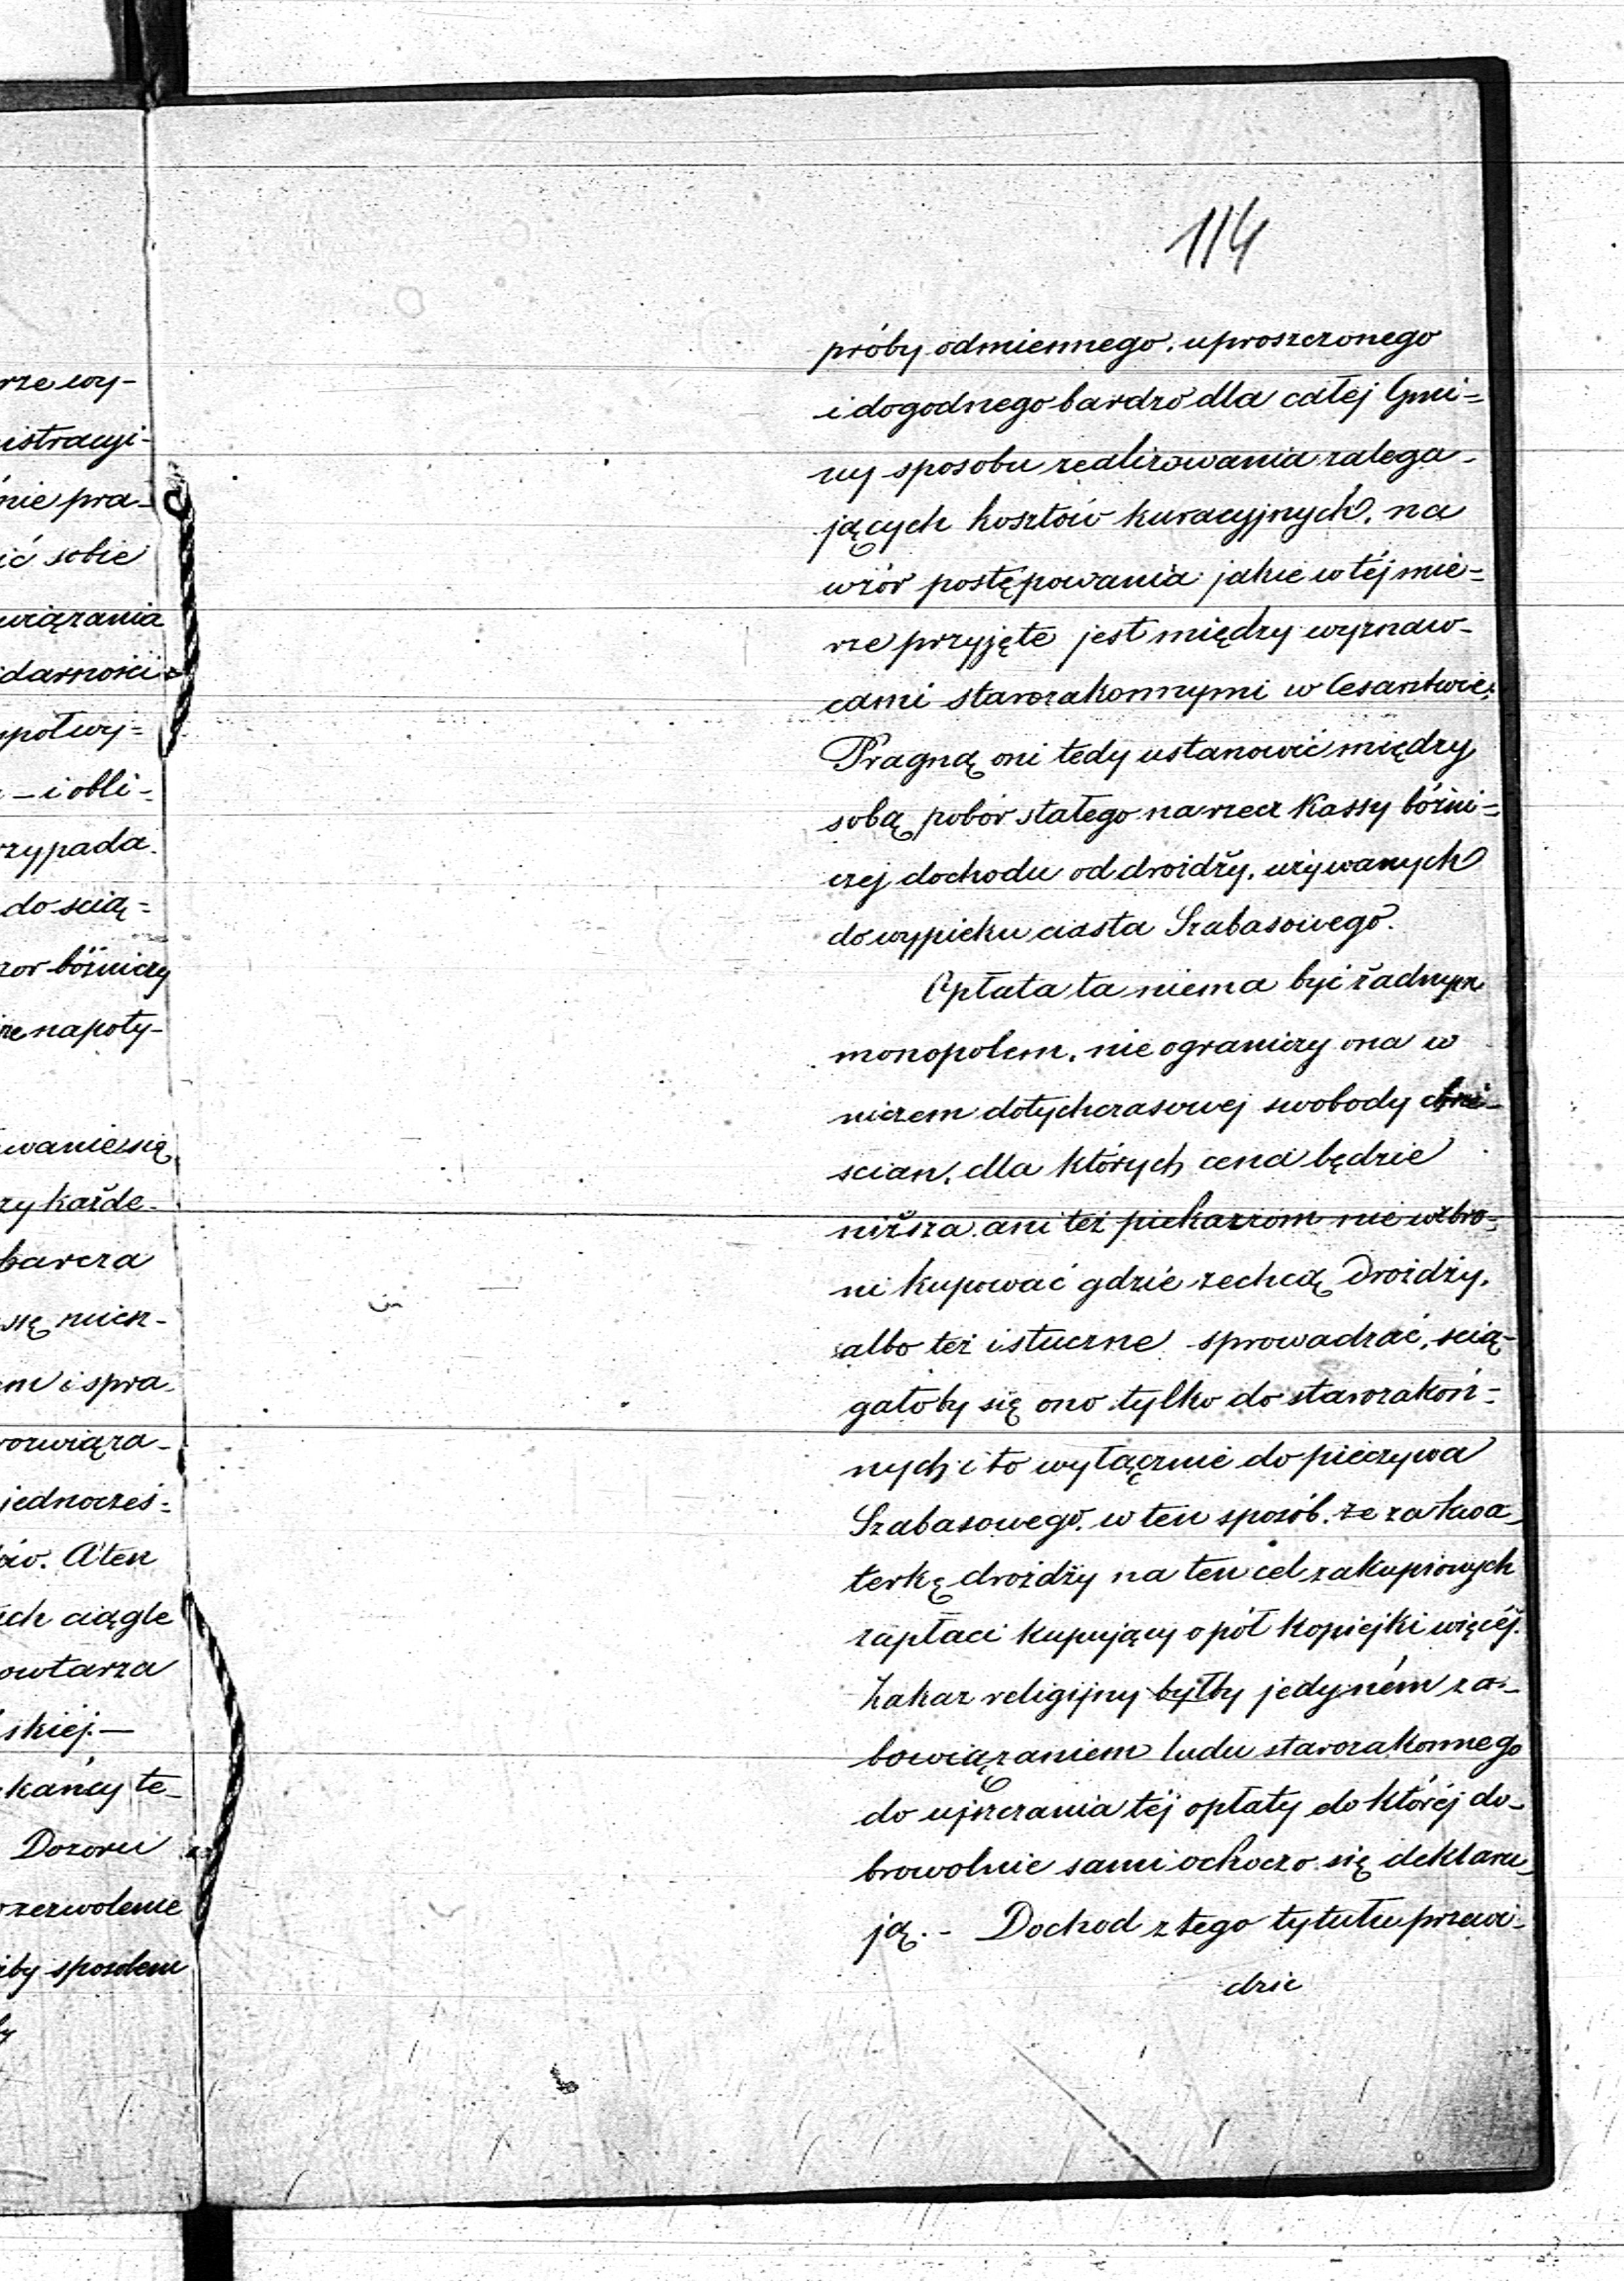 114
próby odmiennego, uproszczonego
i dogodnego bardzo dla całej Gmi=
ny sposobu realizowania zalega-
jących kosztów kuracyjnych, na
wzór postępowania jakie w téj mie=
rze przyjęte jest między wyznaw-
cami starozakonnymi w Cesarstwie.
Pragną oni tedy ustanowić między
sobą pobór stałego na rzecz Kassy bóżni=
czej dochodu od droźdży, używanych
do wypieku ciasta Szabasowego.
Opłata ta niema być żadnym
monopolem, nie ograniczy ona w
niczem dotychczasowej swobody chrze-
scian, dla których cena będzie
niższa ani też piekarzom nie wzbro=
ni kupować gdzie zechcą drożdży,
albo też i stuczne sprowadzać, ścią-
gałoby się ono tylko do starozakon=
nych i to wyłącznie do pieczywa
Szabasowego, w ten sposób, że za kwa-
terkę drożdży na ten cel zakupionych
zapłaci kupujący o pół kopiejki więcéj.
Zakaz religijny byłby jedyném zo-
bowiązaniem ludu starozakonnego
do ujszczania téj opłaty do któréj do-
browolnie sami ochoczo się deklaru-
ją. - Dochod z tego tytułu przewi-
dzie
rze wy-
istracyi-
nie pra-
ić sobie
wiązania
idarności
- i obli=
rzypada.
do scią=
zor bóżniczy
napoty-
wanie się
zy każde-
barcza
się miesz-
em i spra-
rozwiąza-
jednocześ=
ów. A ten
ich ciągle
owtarza
skiéj. -
kańcy te-
Dozoru
zezwolenie
iby sposobem